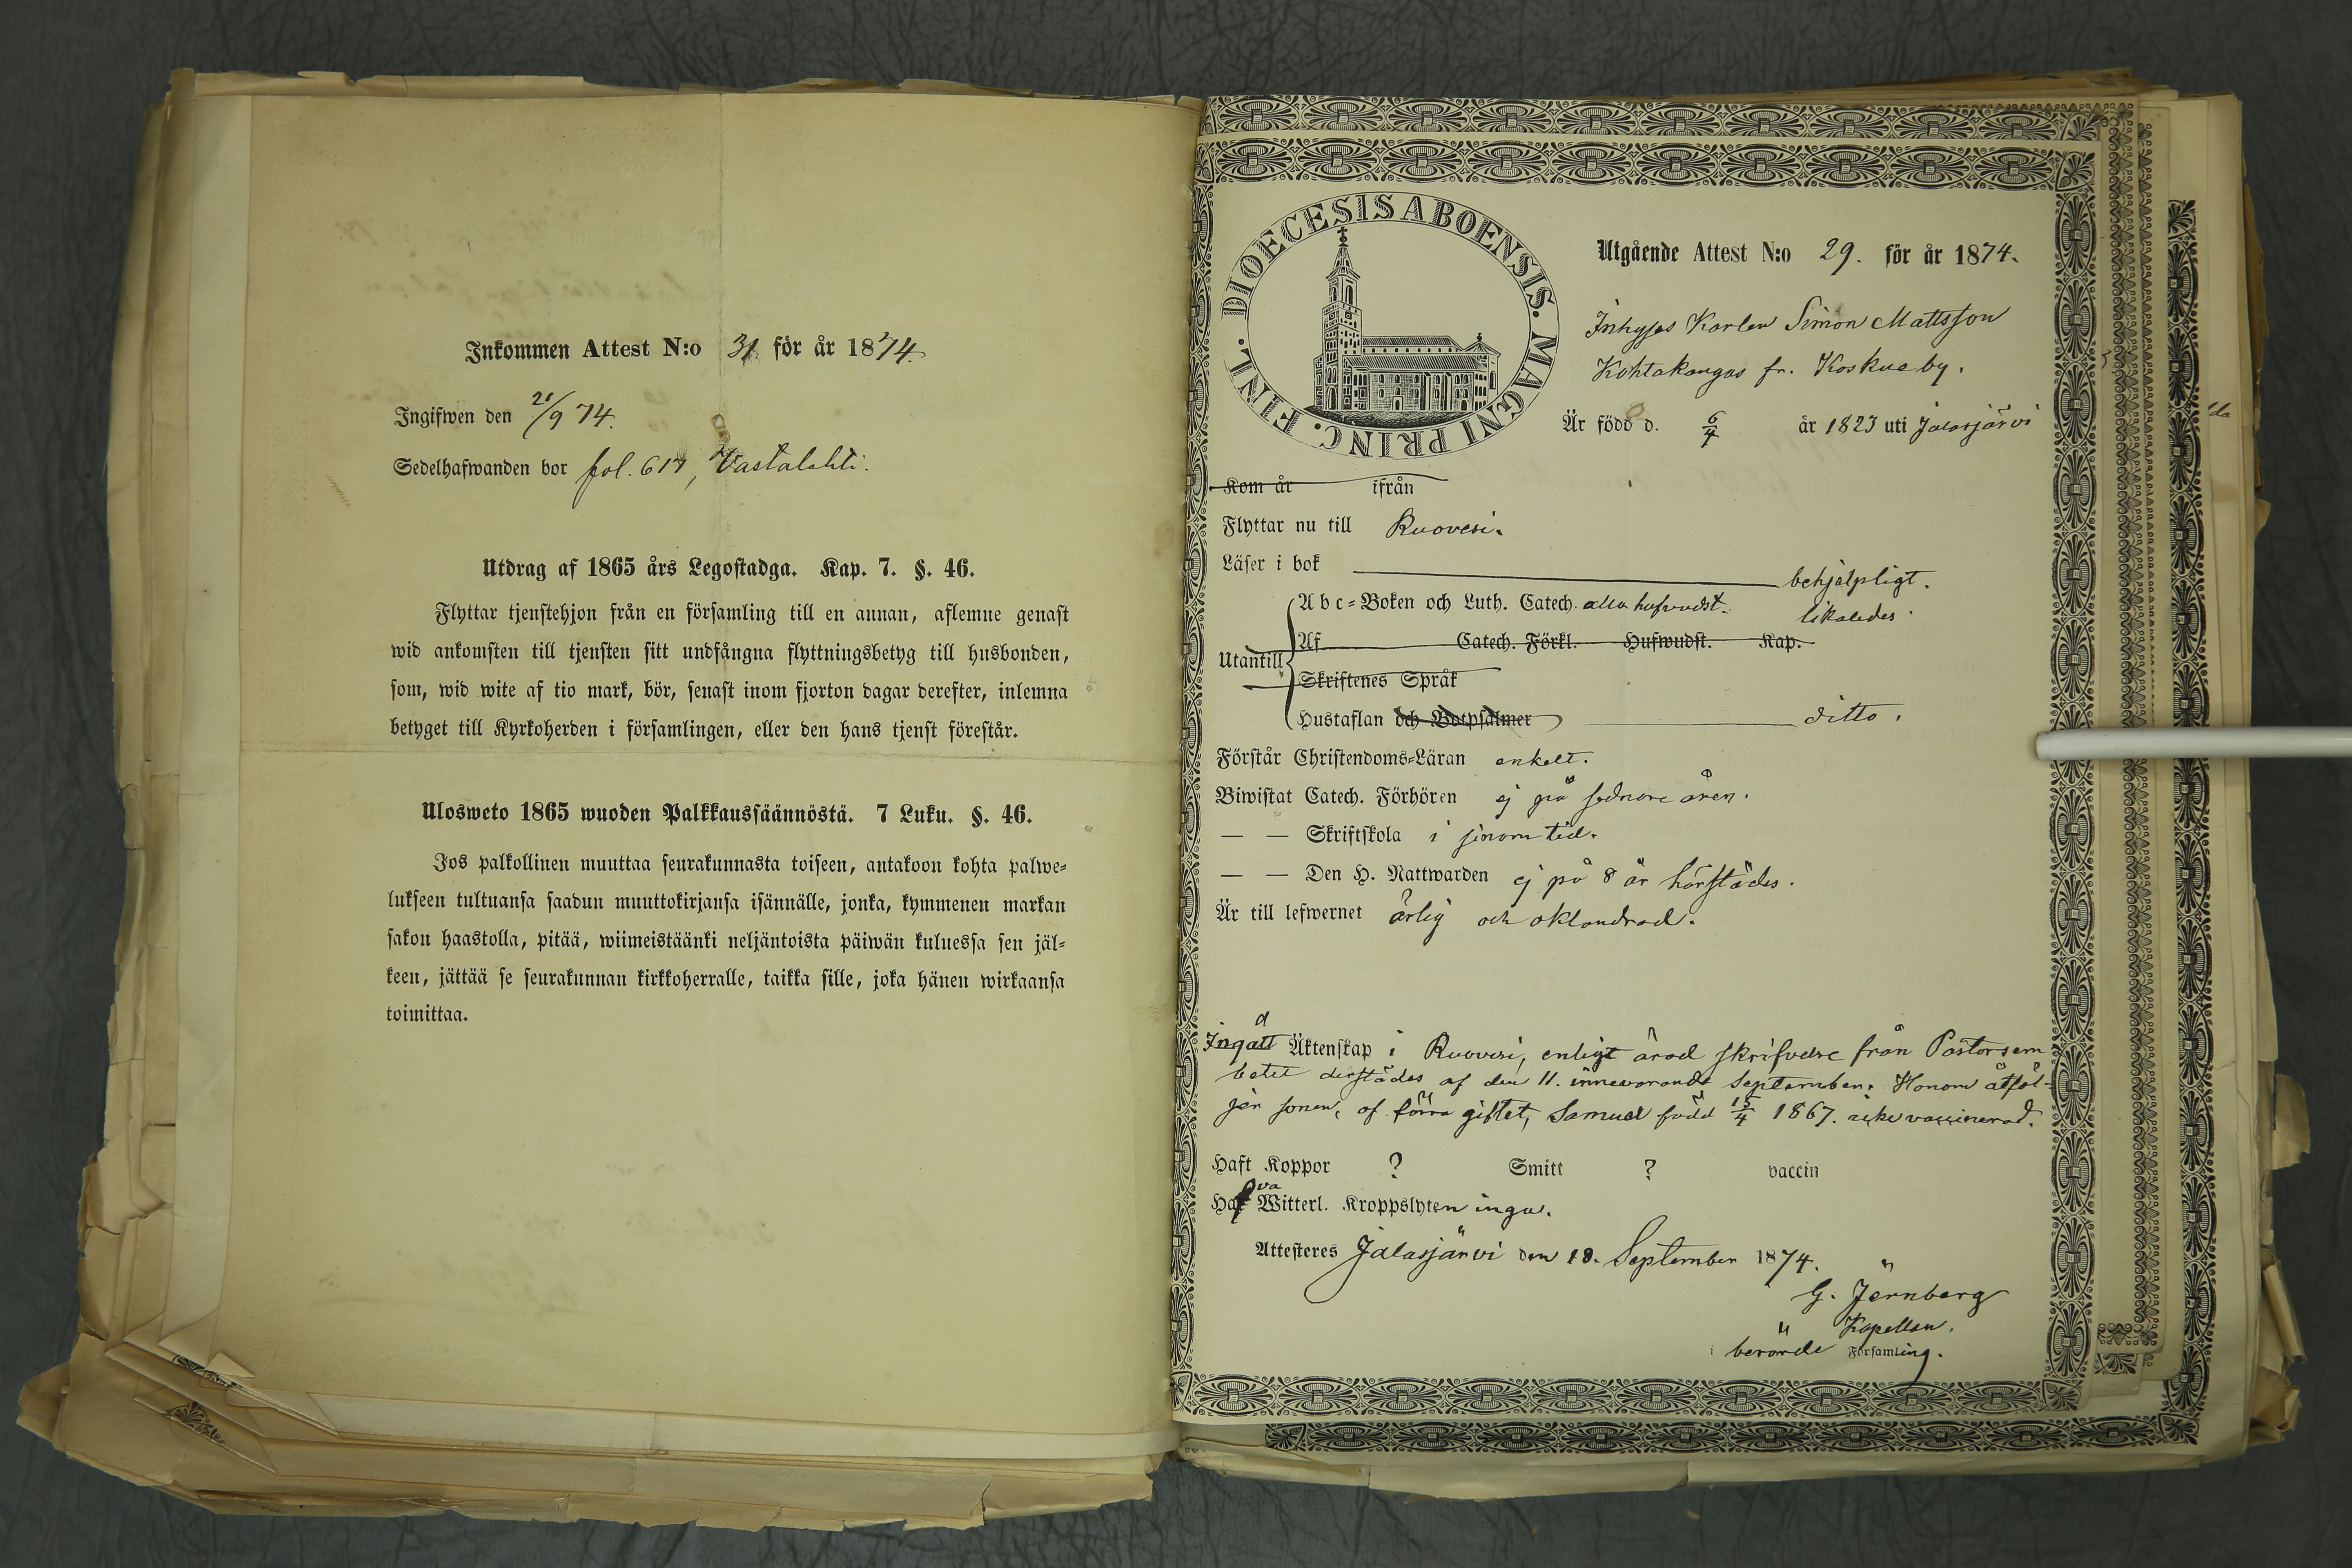 Inkommen Attest N:o 31 för år 1874.
Ingifwen den 21/9 74.
Sedelhafwanden bor fol. 617, Vastalahti.
Utdrag af 1865 års Legostadga. Kap. 7. §. 46.
Flyttar tjenstehjon från en församling till en annan, aflemne genast
wid ankomsten till tjensten sitt undfångna flyttningsbetyg till husbonden,
som, wid wite af tio mark, bör, senast inom fjorton dagar derefter, inlemna
betyget till Kyrkoherden i församlingen, eller den hans tjenst förestår.
Ulosweto 1865 wuoden Palkkaussäännöstä. 7 Luku. §. 46.
Jos palkollinen muuttaa seurakunnasta toiseen, antakoon kohta palwe-
lukseen tultuansa saadun muuttokirjansa isännälle, jonka, kymmenen markan
sakon haastolla, pitää, wiimeistäänki neljäntoista päiwän kuluessa sen jäl-
keen, jättää se seurakunnan kirkkoherralle, taikka sille, joka hänen wirkaansa
toimittaa.
DIOECESIS ABOENSIS. MAGNI PRINC. FINL.
Utgående Attest N:o 29. för år 1874.
Inhyses Karlen Simon Mattsson
Kohtakangas fr. Koskue by.
Är född d. 6/4 år 1823 uti Jalasjärvi
Kom år ifrån
Flyttar nu till Ruovesi.
Läser i bok behjelpligt.
Utantill
Abc-Boken och Luth. Catech. alla hufvudst. likaledes.
Af Catech. Förkl. Hufwudst. Kap.
Skriftenes Språk
Hustaflan och Botpsalmer ditto.
Förstår Christendoms-Läran enkelt.
Biwistat Catech. Förhören ej på sednare åren.
— — Skriftskola i sinom tid.
— — Den H. Nattwarden ej på 8 år härstädes.
Är till lefwernet ärlig och oklandrad.
Ingått Äktenskap i Ruovesi, enligt ärad skrifvelse från Pastorsem
betet derstädes af den 11. innevarande September. Honom åtföl-
jer sonen, af förra giftet, Samuel född 15/4 1867. icke vaccinerad.
Haft Koppor ? Smitt ? vaccin
Hafva Witterl. Kroppslyten inga.
Attesteres Jalasjärvi den 18. September 1874.
G. Jernberg
Kapellan.
berörde Församling.